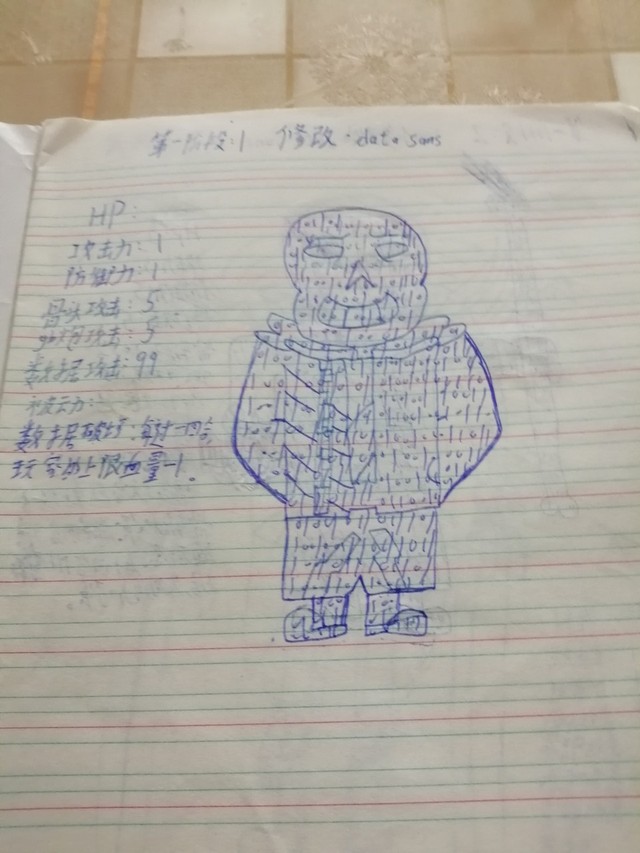 第一阶段:1 修改·data sans
HP:
攻击力:1
防御力:1
骨头攻击:5
gb炮攻击:5
数据攻击:99
被动力:
数据破坏:每过一回合
玩家的上限血量-1.